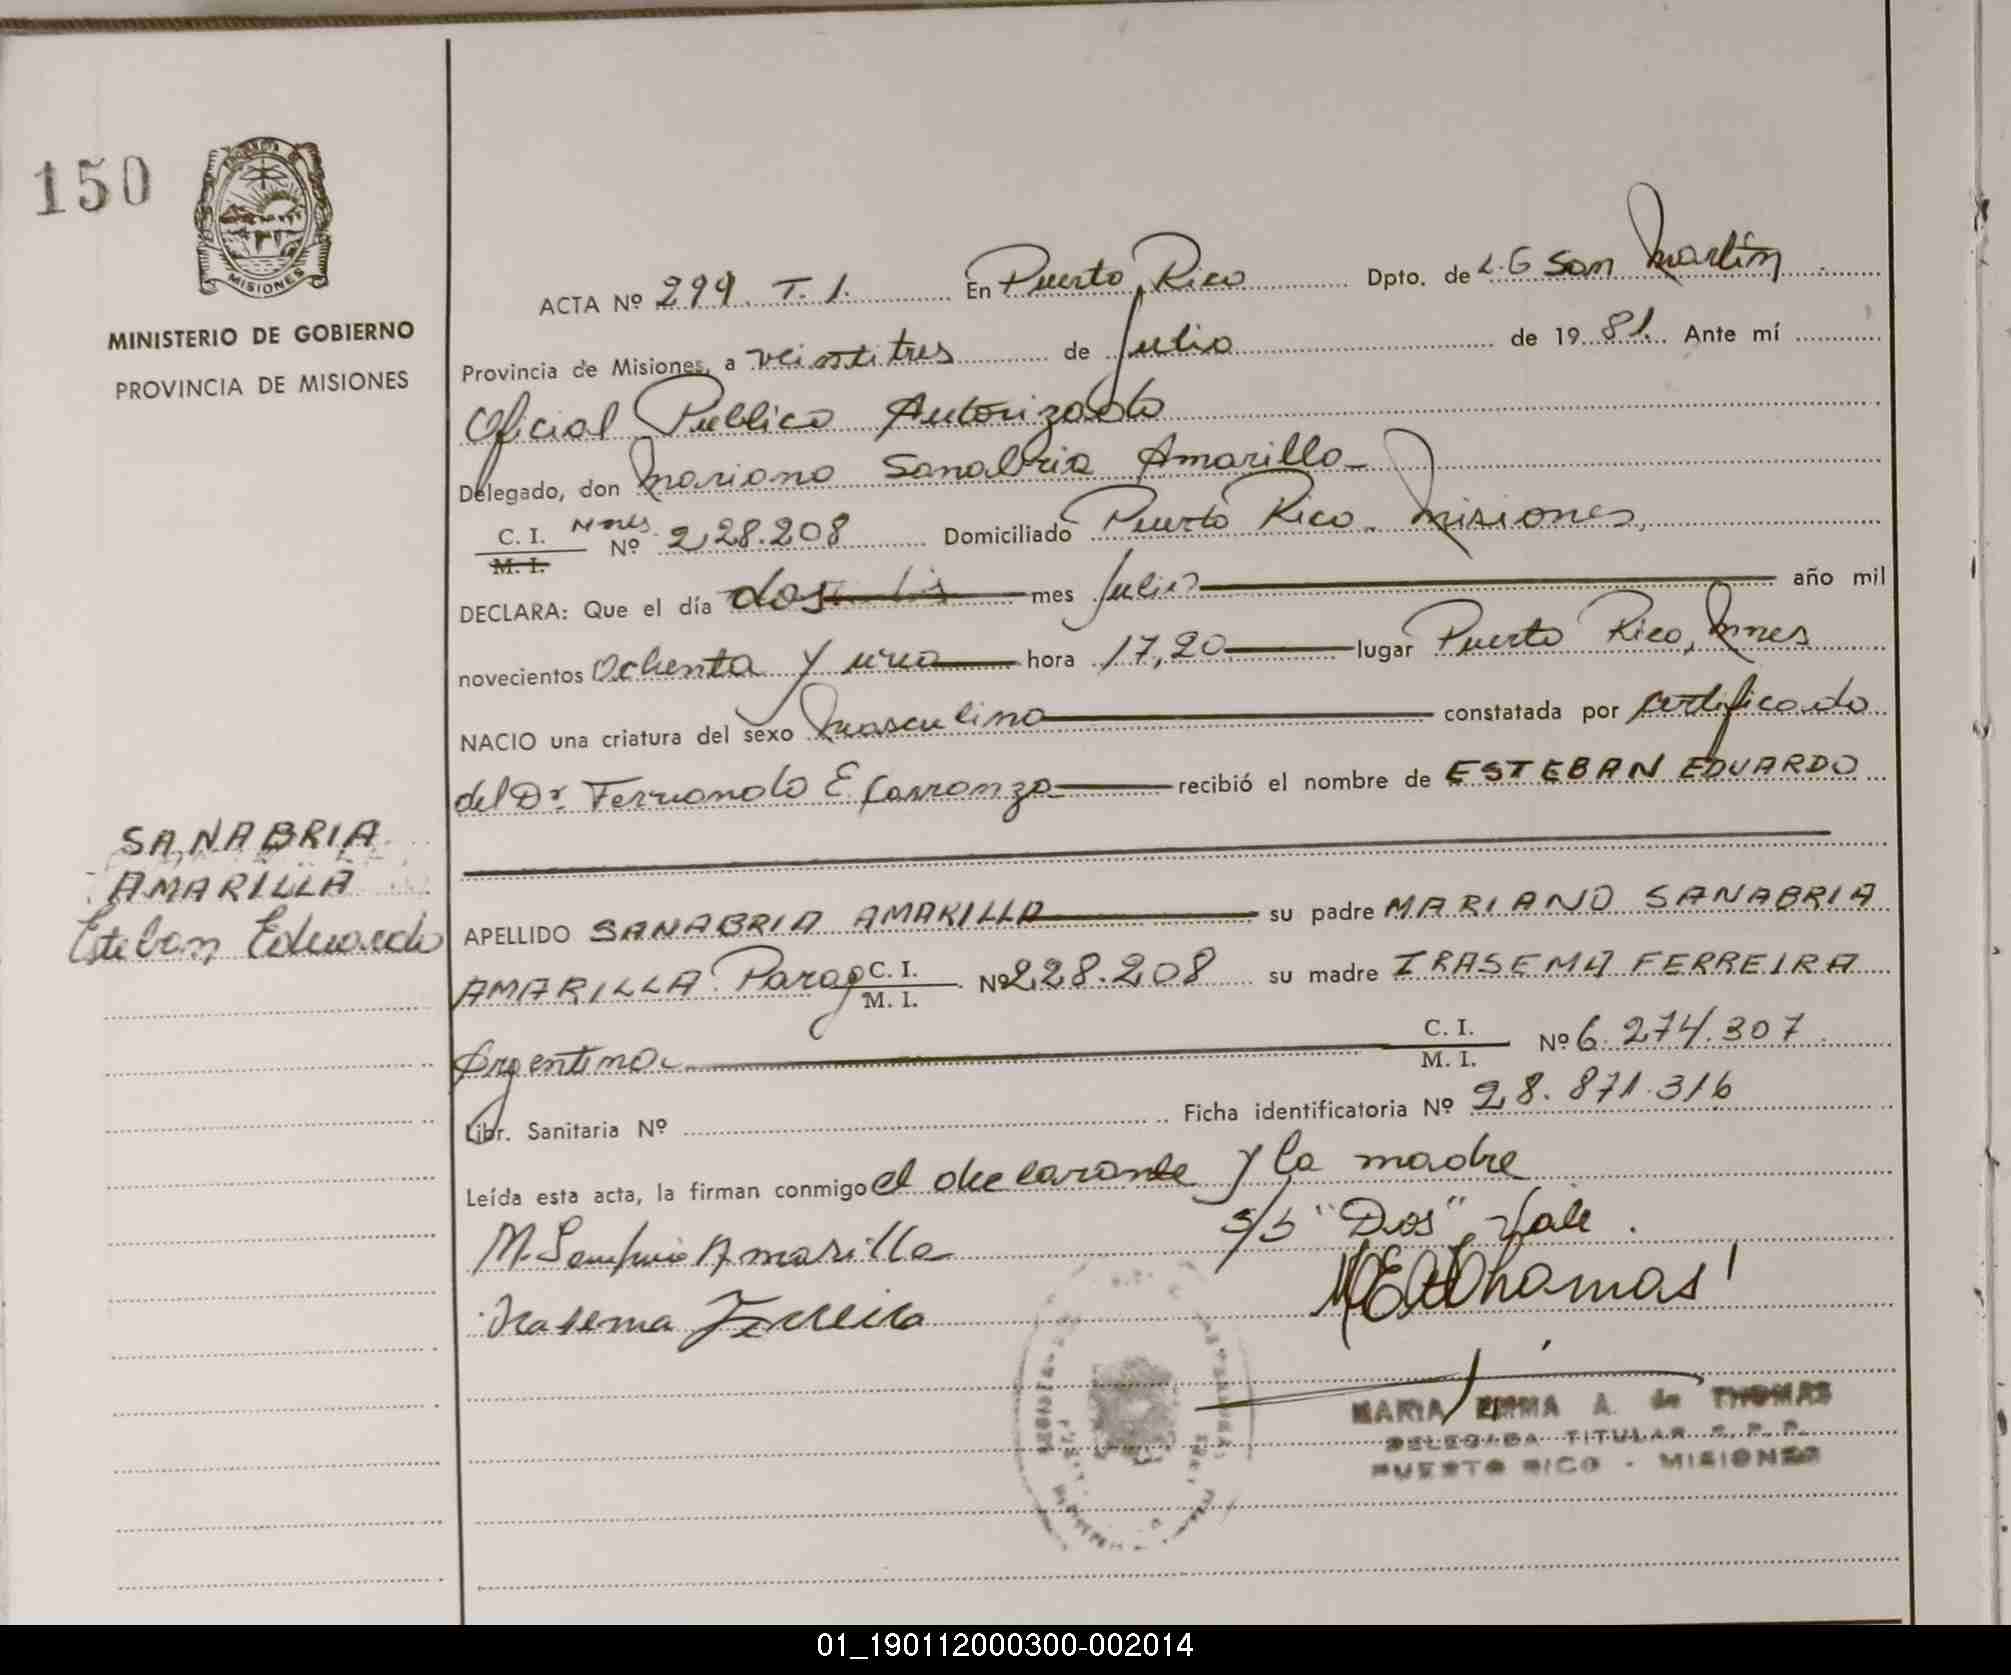 150
MISIONES
MINISTERIO DE GOBIERNO
PROVINCIA DE MISIONES
ACTA Nº 299. T. 1. En Puerto Rico Dpto. de L. G San Martín
Provincia de Misiones, a veintitres de Julio de 19 81. Ante mí
Oficial Publico Autorizado
Delegado, don Mariano Sanabria Amarilla
C. I. Mnes
M. I. Nº 228.208 Domiciliado Puerto Rico. Misiones,
DECLARA: Que el día dos mes Julio año mil
novecientos Ochenta y uno hora 17,20 lugar Puerto Rico, Mnes
NACIO una criatura del sexo Masculino constatada por certificado
del Dr. Fernando E. Carranza recibió el nombre de ESTEBAN EDUARDO
SANABRIA
AMARILLA
Esteban Eduardo
APELLIDO SANABRIA AMARILLA su padre MARIANO SANABRIA
AMARILLA. Parag C. I. Nº 228.208 su madre IRASEMA FERREIRA
M. I.
Argentina C. I. Nº 6.274.307
M. I.
Libr. Sanitaria Nº Ficha identificatoria Nº 28.871.316
Leída esta acta, la firman conmigo el declarante y la madre
M. Sanabria Amarilla S/b "Dos", Vale.
Irasema Ferreira Thomas
MARIA EMMA A. de THOMAS
DELEGADA TITULAR R. P. P.
PUERTO RICO - MISIONES
01_190112000300-002014